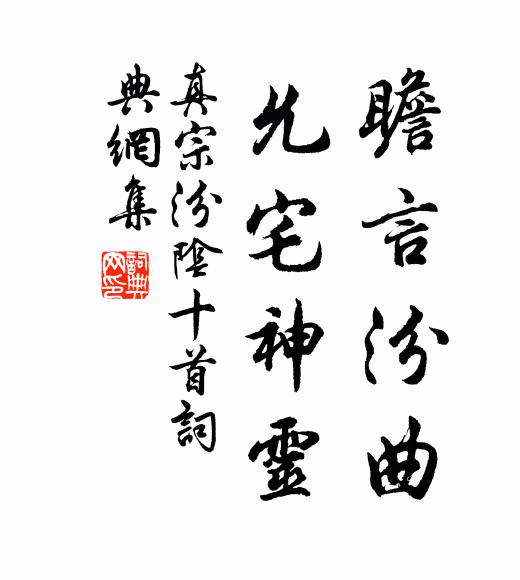 瞻言汾曲
允宅神靈
真宗汾陰十首詞
典網集
詞典網印